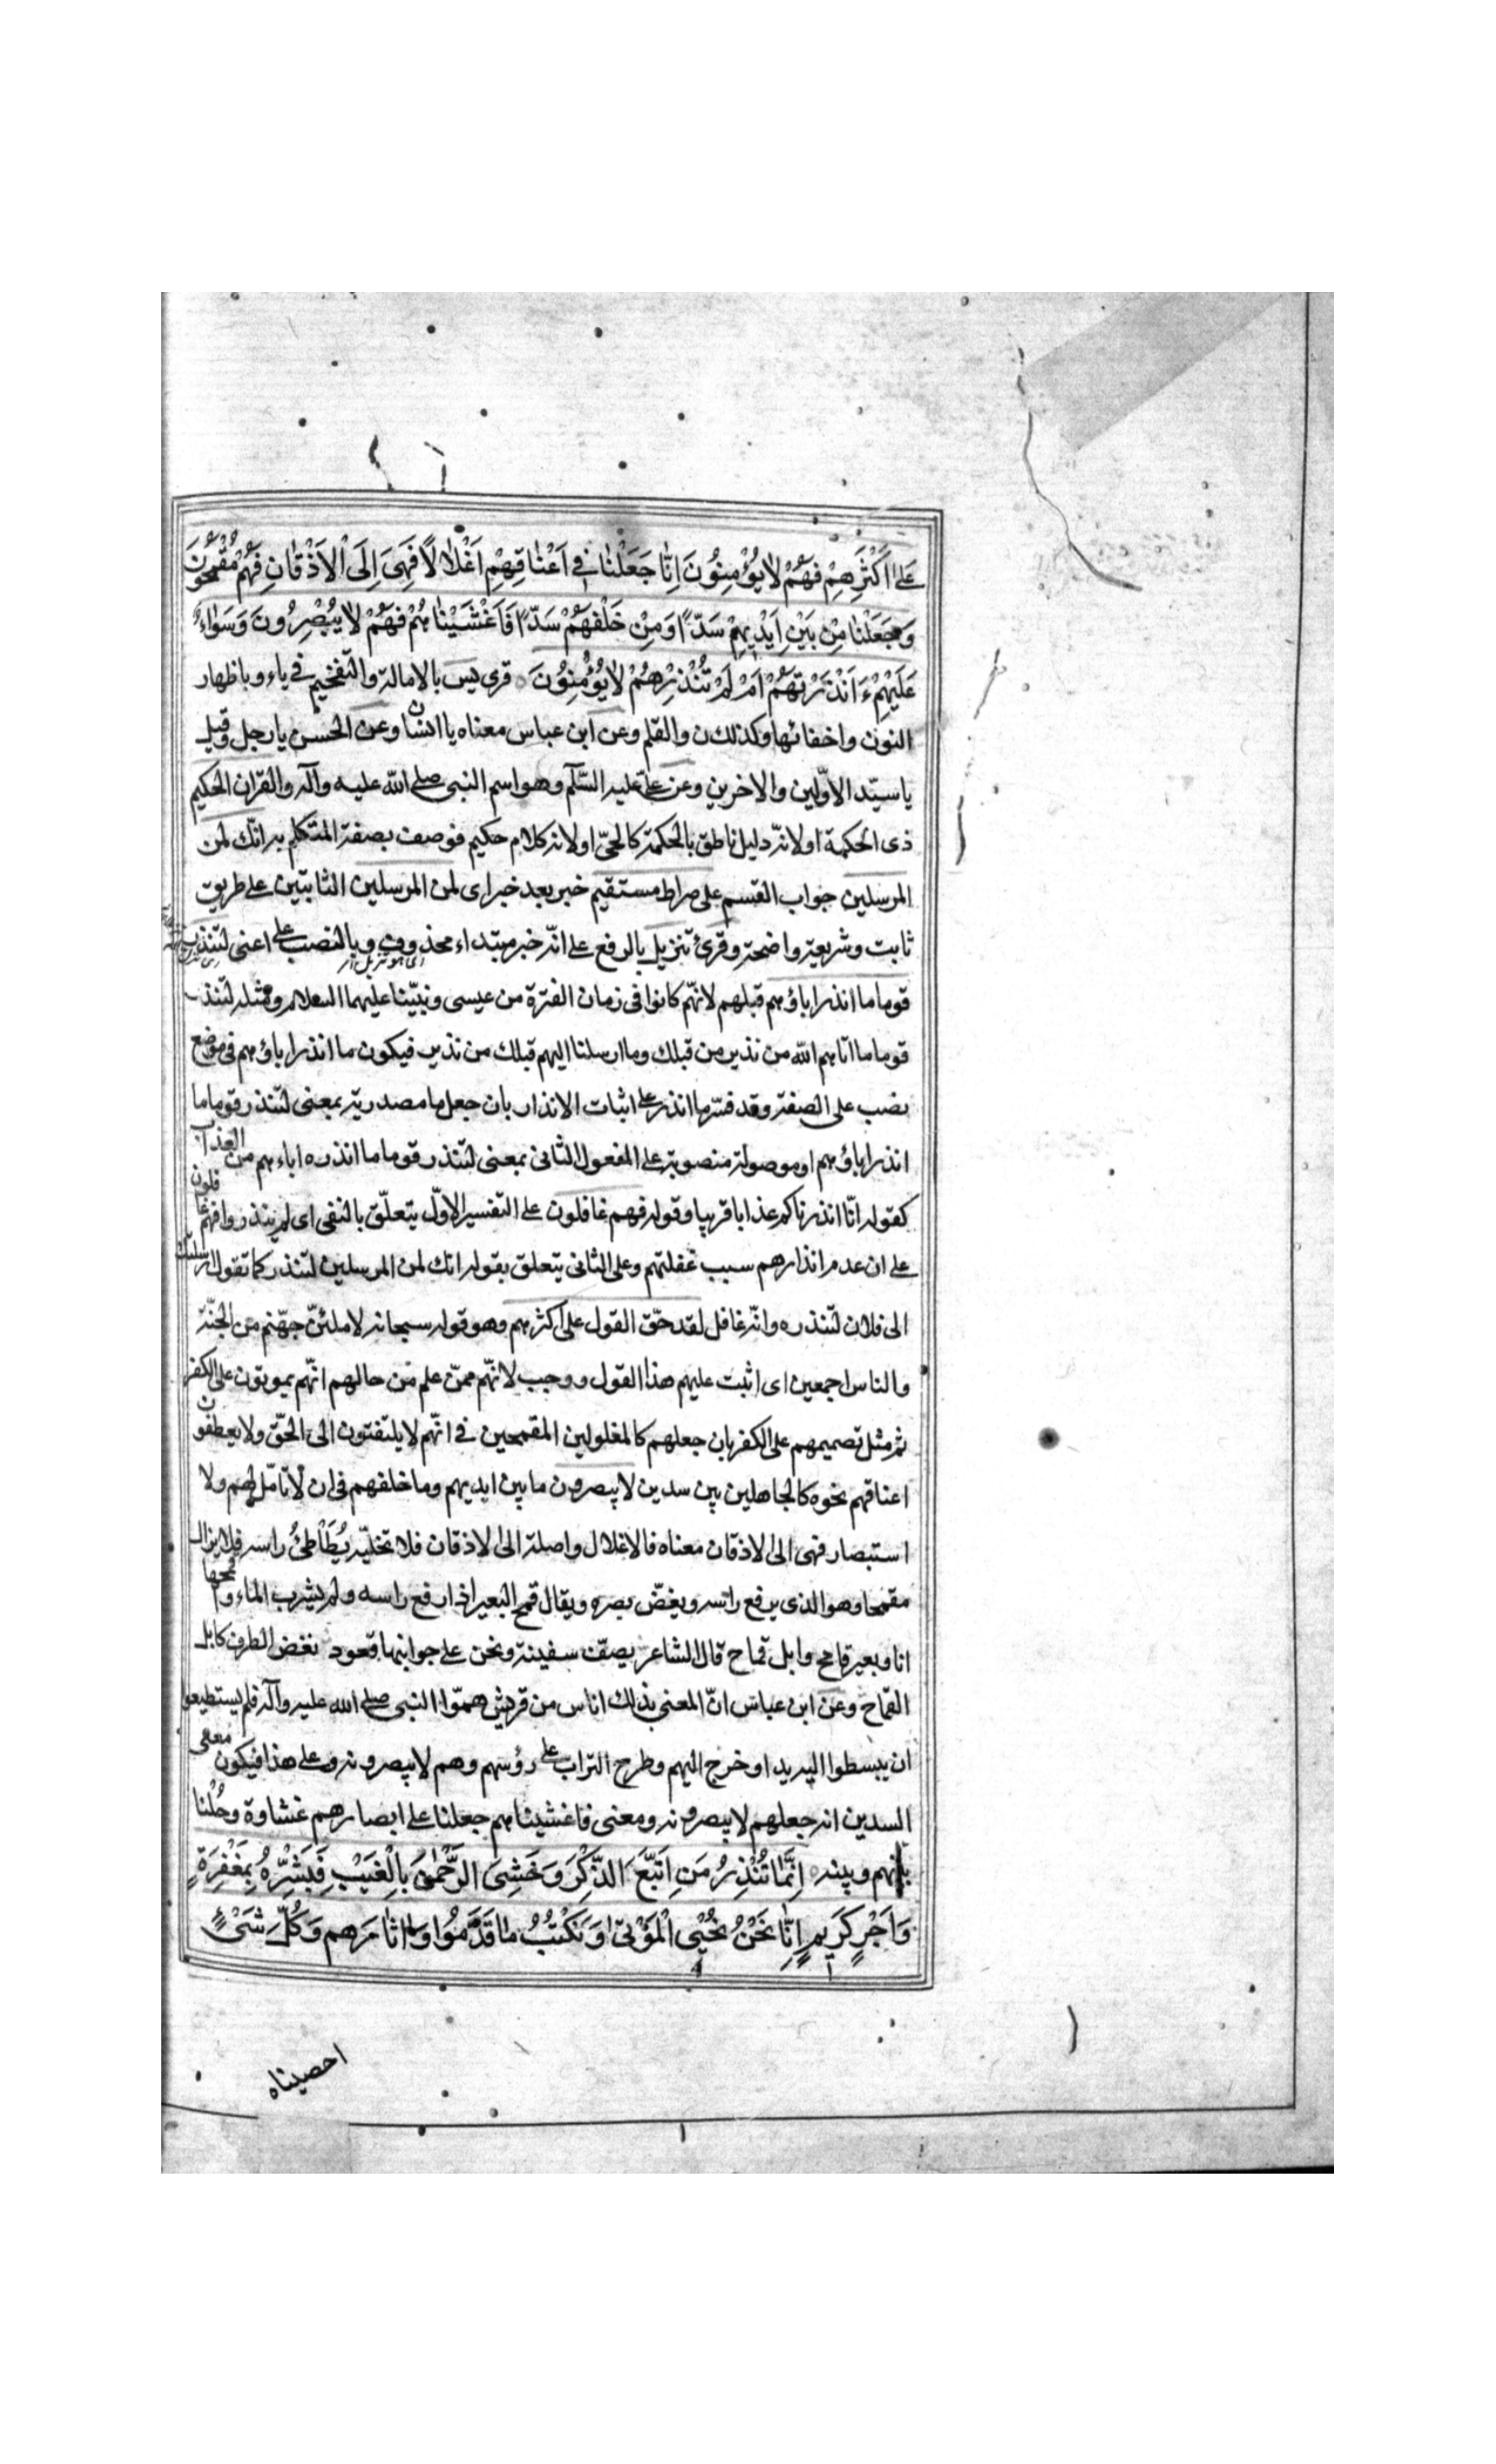 عَلٰى اَكْثَرِهِمْ فَهُمْ لَايُؤْمِنُونَ اِنَّا جَعَلْنَا فِى اَعْنَاقِهِمْ اَغْلَالًا فَهِىَ اِلَى الْاَذْقَانِ فَهُمْ مُقْمَحُونَ
وَجَعَلْنَا مِنْ بَيْنِ اَيْدِيهِمْ سَدًّا وَمِنْ خَلْفِهِمْ سَدًّا فَاَغْشَيْنَاهُمْ فَهُمْ لَا يُبْصِرُونَ وَسَوَاءٌ
عَلَيْهِمْ ءَاَنْذَرْتَهُمْ اَمْ لَمْ تُنْذِرْهُمْ لَايُؤْمِنُونَ قرى يس بالامالة والتفخيم فى ياء وباظهار
النون واخفائها وكذلك ن والقلم وعن ابن عباس معناه يا انسان وعن الحسن يا رجل وقيل
يا سيّد الاوّلين والاخرين وعن على عليه السّلم وهو اسم النبى صلى الله عليه وآله والقران الحكيم
ذى الحكمة او لانّه دليل ناطق بالحكمة كالحىّ او لانه كلام حكيم فوصف بصفة المتكلم به انّك لمن
المرسلين جواب القسم على صراط مستقيم خبر بعد خبر اى لمن المرسلين الثابتين على طريق
ثابت وشريعة واضحة وقرئ تنزيل بالرفع على انّه خبر مبتداء محذوف وبالنصب على اعنى لتنذر
اى هو تنزيل
قوما ما انذر اباؤهم قبلهم لانّهم كانوا فى زمان الفترة من عيسى ونبيّنا عليهما السلام ومثله لتنذر
قوما ما اتاهم الله من نذير من قبلك وما ارسلنا اليهم قبلك من نذير فيكون ما انذر اباؤهم فى موضع
نصب على الصفة وقد فسّر ما انذر على اثبات الانذار بان جعل ما مصدرية بمعنى لتنذر قوما ما
انذر اباؤهم او موصولة منصوبة على المفعول الثانى بمعنى لتنذر قوما ما انذره اباءهم من العذاب
كقوله انّا انذرناكم عذابا قريبا وقوله فهم غافلون على التفسير الاوّل يتعلّق بالنفى اى لم ينذروا فهم غافلون
على ان عدم انذارهم سبب غفلتهم وعلى الثانى يتعلق بقوله انك لمن المرسلين لتنذر كما تقول ارسلتك
الى فلان لتنذره وانّه غافل لقد حقّ القول على اكثرهم وهو قوله سبحانه لاملئنّ جهّنم من الجنّة
والناس اجمعين اى اثبت عليهم هذا القول ووجب لانّهم ممّن علم من حالهم انّهم يموتون على الكفر
ثم مثل تصميمهم على الكفر بان جعلهم كالمغلولين المقمحين فى انّهم لا يلتفتون الى الحقّ ولا يعطفون
اعناقهم نحوه كالجاهلين بين سدين لا يبصرون ما بين ايديهم وما خلفهم فى ان لا تامّل لهم ولا
استبصار فهى الى الاذقان معناه فالاغلال واصلة الى الاذقان فلا تخلّيه يُطَأْطِئُ راسه فلا يزال
مقمحا وهو الذى يرفع راسه ويغضّ بصره ويقال قمح البعير اذا رفع راسه ولم يشرب الماء واقمحها
انا وبعير قامح وابل قماح قال الشاعر يصف سفينة ونحن على جوانبها قعود نغض الطرف كابل
القماح وعن ابن عباس انّ المعنى بذلك اناس من قريش همّوا النبى صلى الله عليه وآله فلم يستطيعوا
ان يبسطوا اليه يدا وخرج اليهم وطرح التراب على رؤسهم وهم لا يبصرونه وعلى هذا فيكون معنى
السدين انه جعلهم لا يبصرونه ومعنى فاغشيناهم جعلنا على ابصارهم غشاوة وحُلْنا
بينهم وبينه اِنَّمَا تُنْذِرُ مَنِ اتَّبَعَ الذِّكْرَ وَخَشِىَ الرَّحْمٰنَ بِالْغَيْبِ فَبَشِّرْهُ بِمَغْفِرَةٍ
وَاَجْرٍ كَرِيمٍ اِنَّا نَحْنُ نُحْيِى الْمَوْتٰى وَنَكْتُبُ مَا قَدَّمُوا وَاٰثَارَهم وَكُلَّ شَىْءٍ
احصيناه